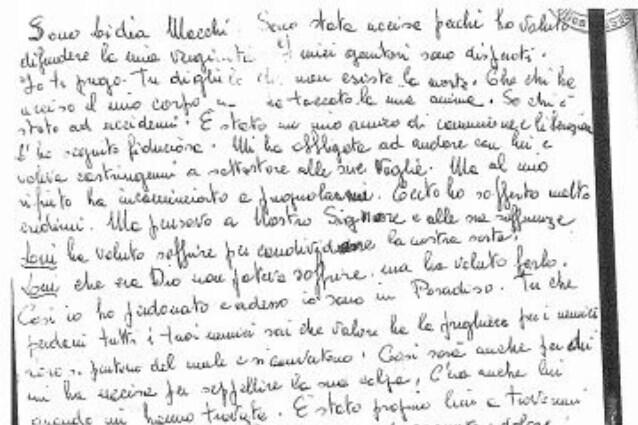 Sono Lidia Macchi. Sono stata uccisa perché ho voluto
difendere la mia verginità. I miei genitori sono disperati.
Io ti prego. Tu digli che non esiste la morte. Che chi ha
ucciso il mio corpo toccato la mia anima. So chi è
stato ad uccidermi. È stato un mio amico di comunione e liberazione
L'ho seguito fiduciosa. Mi ha obbligata ad andare con lui e
voleva costringermi a sottostare alle sue voglie. Ma al mio
rifiuto ha incominciato a pugnalarmi. Certo ho sofferto molto
credimi. Ma pensavo a Nostro Signore e alle sue sofferenze
Lui ha voluto soffrire per condividere la nostra sorte.
Lui che era Dio non poteva soffrire, ma ha voluto farlo.
Così io ho perdonato e adesso io sono in Paradiso. Tu che
perdoni tutti i tuoi nemici sai che valore ha la preghiera per i nemici
si pentono del male e si convertono. Così sarà anche per chi
mi ha uccisa per seppellire la sua colpa. C'era anche lui
quando mi hanno trovata. È stato proprio lui a trovarmi